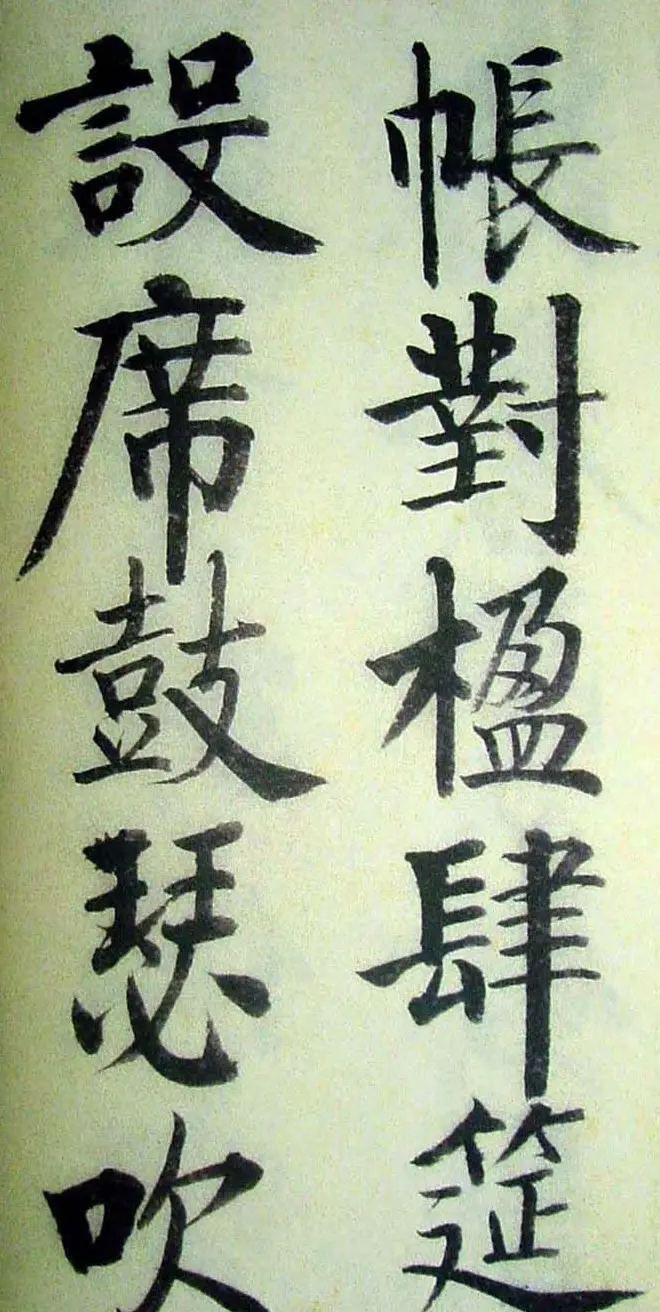 帳對楹肆筵
設席鼓瑟吹